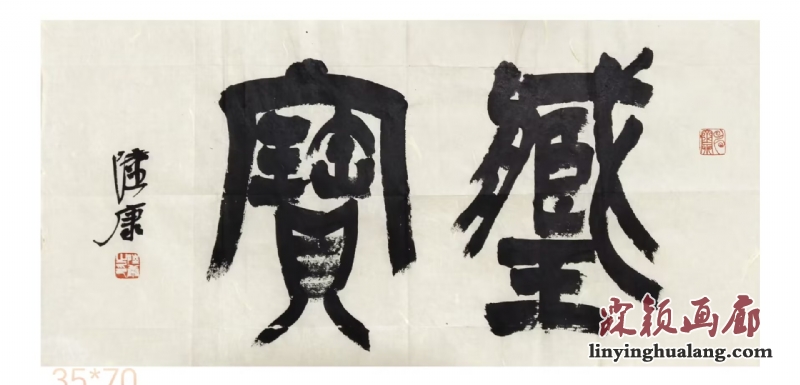 藏寶
陸康
霖颖画廊
linyinghualang.com
35*70